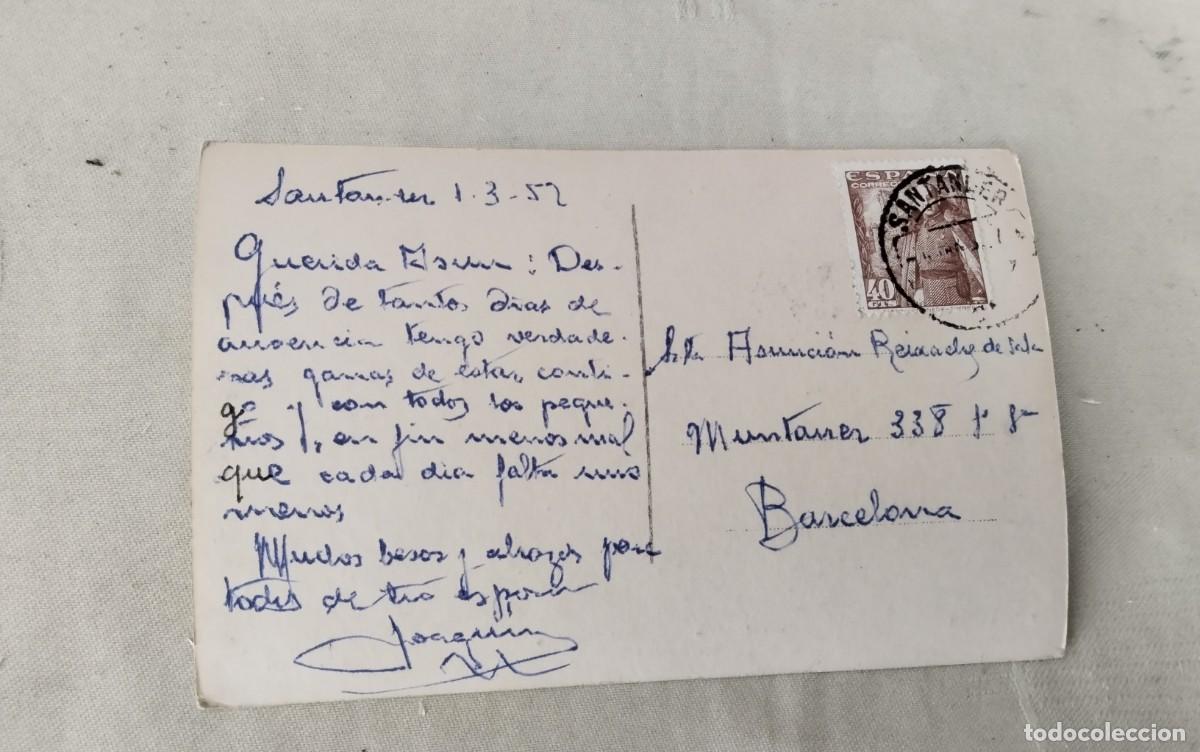 Santander 1-3-52
Querida Asun: Des-
pués de tantos dias de
ausencia tengo verdade-
ras ganas de estar conti-
go y con todos los peque-
ños, en fin menos mal
que cada dia falta uno
menos
Muchos besos y abrazos para
todos de tu esposo
Joaquin
ESPAÑA
CORREOS
40
SANTANDER
Srta Asunción de
Muntaner 338
Barcelona
todocoleccion